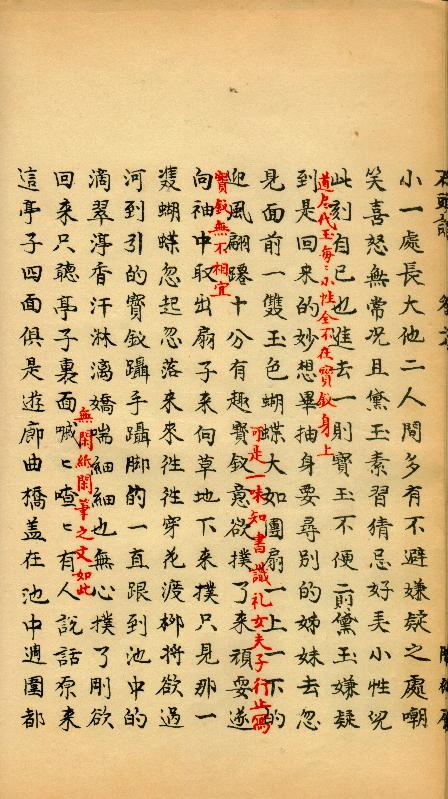 小一處長大他二人間多有不避嫌疑之處嘲
笑喜怒無常况且黛玉素習猜忌好弄小性兒
此刻自已也進去一則寶玉不便二則黛玉嫌疑
道尽代玉每〻小性全不在寶釵身上
到是回來的妙想畢抽身要尋別的姊妹去忽
見面前一雙玉色蝴蝶大如團扇一上一下的
可是一味知書識礼女夫子行止寫
迎風翩躚十分有趣寶釵意欲撲了來頑耍遂
寶釵無不相宜
向袖中取出扇子來向草地下來撲只見那一
雙蝴蝶忽起忽落來來徃徃穿花渡柳將欲過
河到引的寶釵躡手躡脚的一直跟到池中的
滴翠渟香汗淋漓嬌喘細細也無心撲了剛欲
無閑紙閑筆之文如此
回來只聽亭子裏面嘁〻喳〻有人說話原來
這亭子四面俱是遊廊曲橋盖在池中週圍都